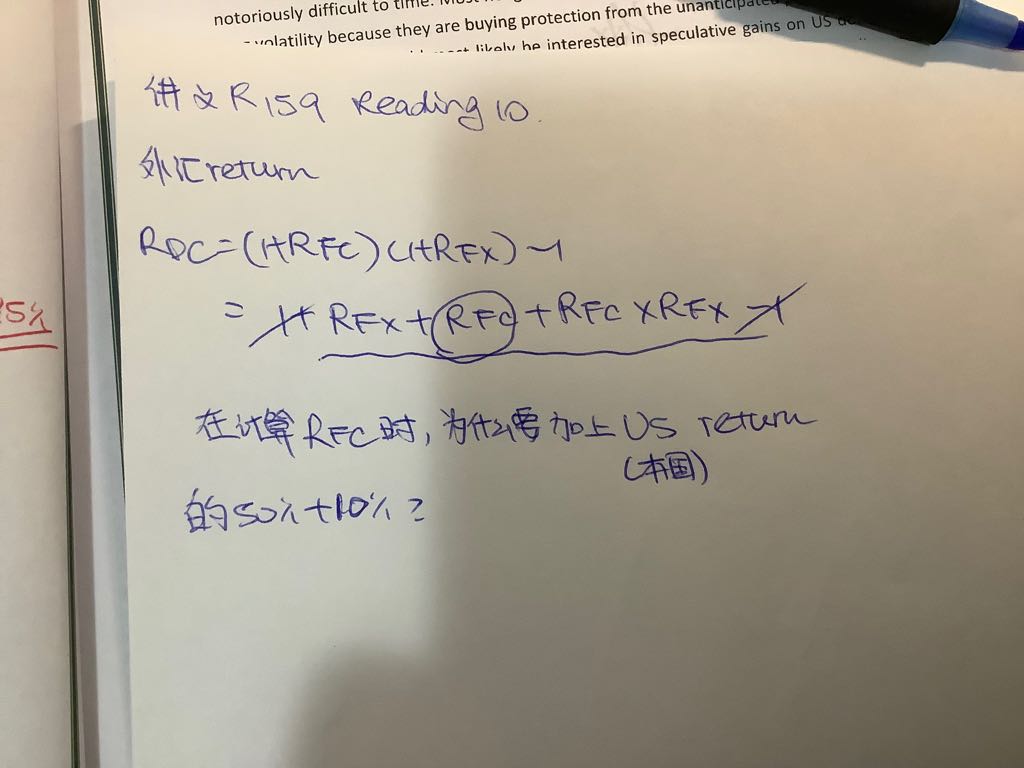 notoriously difficult to time.
volatility because they are buying protection from the unanticipated
likely be interested in speculative gains on US
讲义 R159 Reading 10.
外汇return
RDC=(1+RFC)(1+RFX)-1
= 1+RFX+RFC+RFC×RFX-1
5%
在计算RFC时,为什么要加上US return
(本国)
的50%+10%?